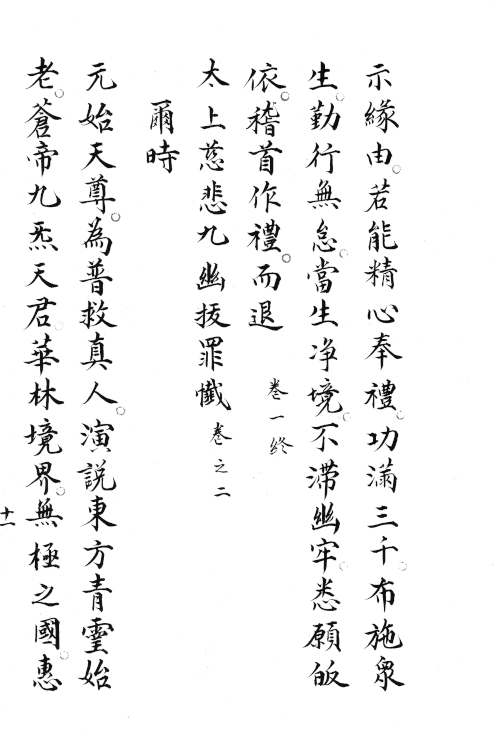 示緣由。若能精心奉禮。功滿三千。布施眾
生。勤行無怠。當生净境。不滯幽牢。悉願皈
依。稽首作禮。而退
卷一終
太上慈悲九幽拔罪懺 卷之二
爾時
元始天尊。為普救真人。演説東方青靈始
老。蒼帝九炁天君。華林境界。無極之國。惠
十一